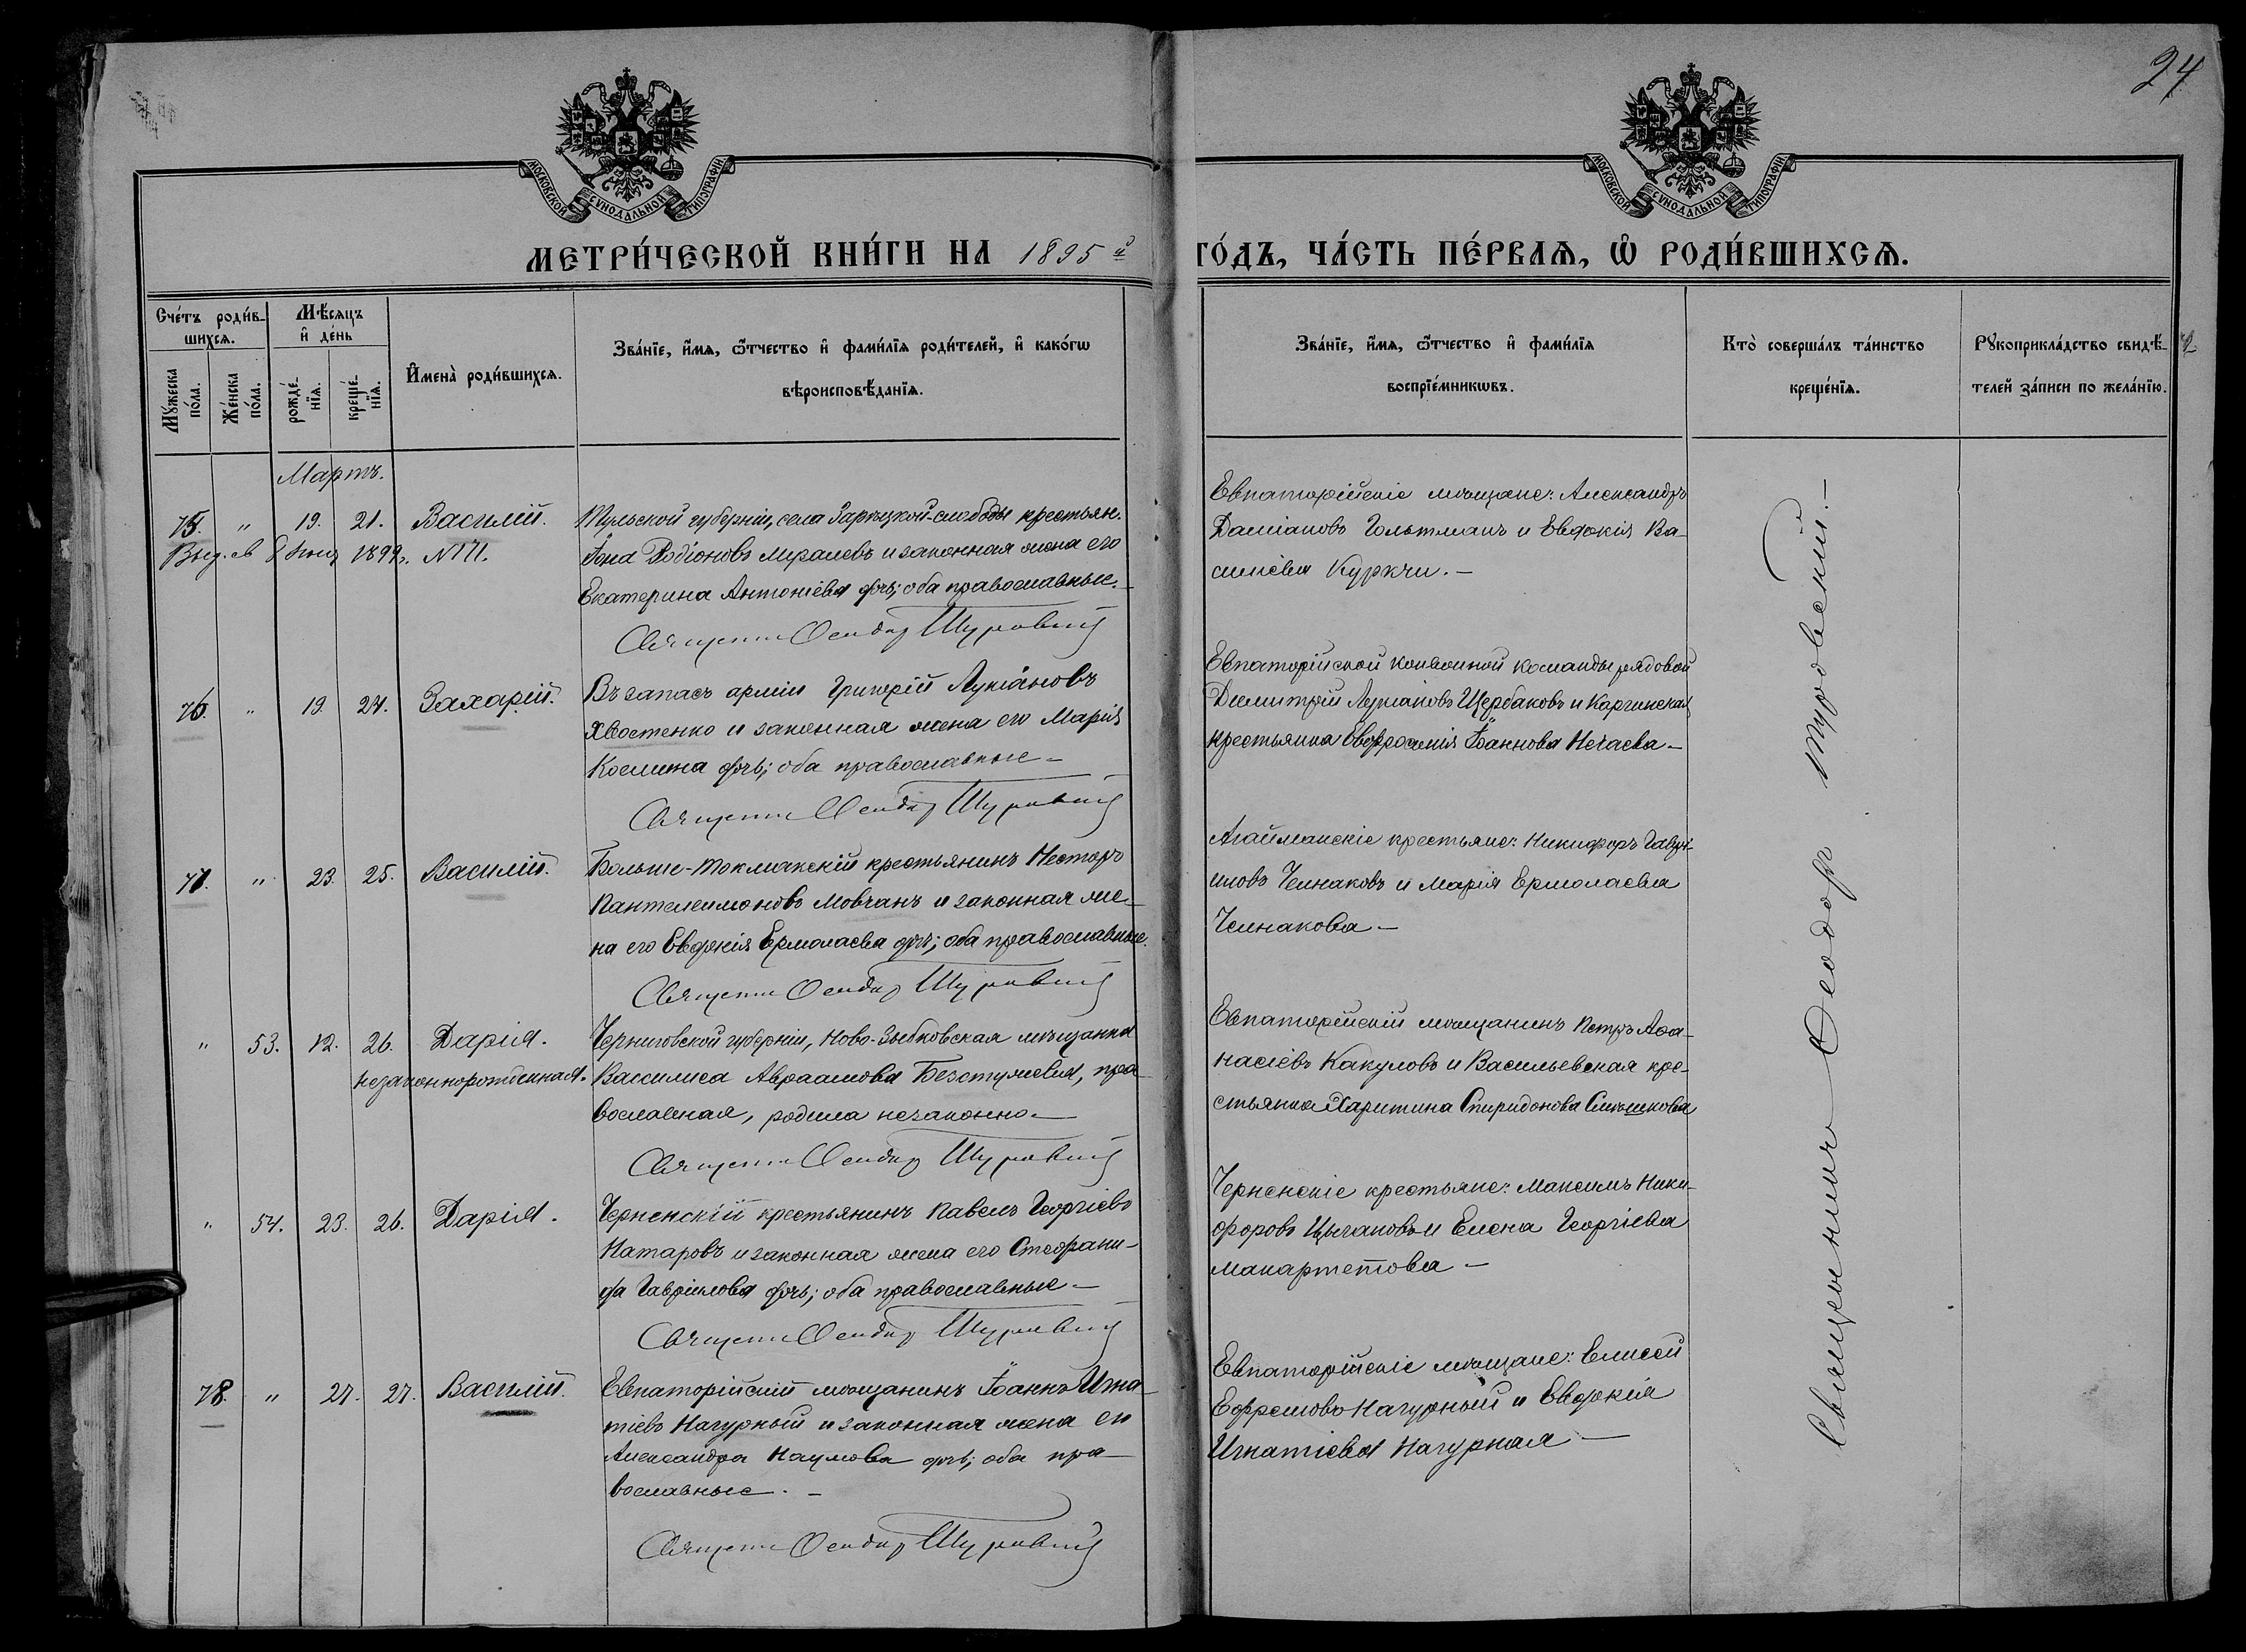 24
МОСКОВСКОЙ СѴНОДАЛЬНОЙ ТИПОГРАФІИ
МОСКОВСКОЙ СѴНОДАЛЬНОЙ ТИПОГРАФІИ
МЕТРИ́ЧЕСКОЙ КНИ́ГИ НА 1895 й
ГО́ДЪ, ЧА́СТЬ ПЕ́РВАѦ, Ѽ РОДИ́ВШИХСѦ.
Сче́тъ роди́в-
шихсѧ.
Мꙋ́жеска по́ла.
Же́нска по́ла.
Мѣ́сяцъ
и҆ де́нь
рожде́-нїѧ.
креще́-нїѧ.
И҆мена̀ роди́вшихсѧ.
Зва́нїе, и҆́мѧ, ѻ҆́тчество и҆ фами́лїѧ роди́телей, и҆ како́гѡ
вѣроисповѣ́данїѧ.
Зва́нїе, и҆́мѧ, ѻ҆́тчество и҆ фами́лїѧ
воспрїе́мникѡвъ.
Кто̀ соверша́лъ та́инство
креще́нїѧ.
Рꙋкоприкла́дство свидѣ́-
телей за́писи по жела́нїю.
Мартъ.
75. " 19. 21. Василій.
Выд. св. 8 1899 г. N 171.
Тульской губерніи, села Зарѣцкой-слободы крестьян.
Іона Родіоновъ и законная жена его
Екатерина Антоніева дочь; оба православные. —
Священн Ѳеодор Туровскій
Евпаторійскіе мѣщане: Александръ
Даміановъ Гольтманъ и Евдокія Ва-
силіева Куркчи. —
76. " 19. 24. Захарій.
Въ запасѣ арміи Григорій Лукіановъ
Хвостенко и законная жена его Марія
Космина дочь; оба православные —
Священн Ѳеодор Туровскій
Евпаторійской конвойной команды рядовой
Димитрій Лукіановъ Щербаковъ и Каргинская
крестьянка Евфросинія Іоаннова Нечаева —
77. " 23. 25. Василій.
Больше-Токмакскій крестьянинъ Несторъ
Пантелеимоновъ Мовчанъ и законная же-
на его Евдокія Ермолаева дочь; оба православные.
Священн Ѳеодор Туровскій
Агайманскіе крестьяне: Никифоръ Гаври-
иловъ Челнаковъ и Марія Ермолаева
Челнакова —
" 53. 12. 26. Дарія.
незаконнорожденная.
Черниговской губерніи, Ново-Зыбковская мѣщанка
Василиса Авраамова Безстужева, пра-
вославная, родила незаконно —
Священн Ѳеодор Туровскій
Евпаторійскій мѣщанинъ Петръ Аѳа-
насіевъ Какуловъ и Васильевская кре-
стьянка Харитина Спиридонова
" 54. 23. 26. Дарія.
Черненскій крестьянинъ Павелъ Георгіевъ
Натаровъ и законная жена его Стефани-
да Гавріилова дочь; оба православные —
Священн Ѳеодор Туровскій
Черненскіе крестьяне: Максимъ Ники-
форовъ Цыгановъ и Елена Георгіева
Макартетова —
78. " 27. 27. Василій.
Евпаторійскій мѣщанинъ Іоаннъ Игна-
тіевъ Нагурный и законная жена его
Александра Наумова дочь; оба пра-
вославные. —
Священн Ѳеодор Туровскій
Евпаторійскіе мѣщане: Елисей
Ефремовъ Нагурный и Евдокія
Игнатіева Нагурная —
Священникъ Ѳеодоръ Туровскій. —